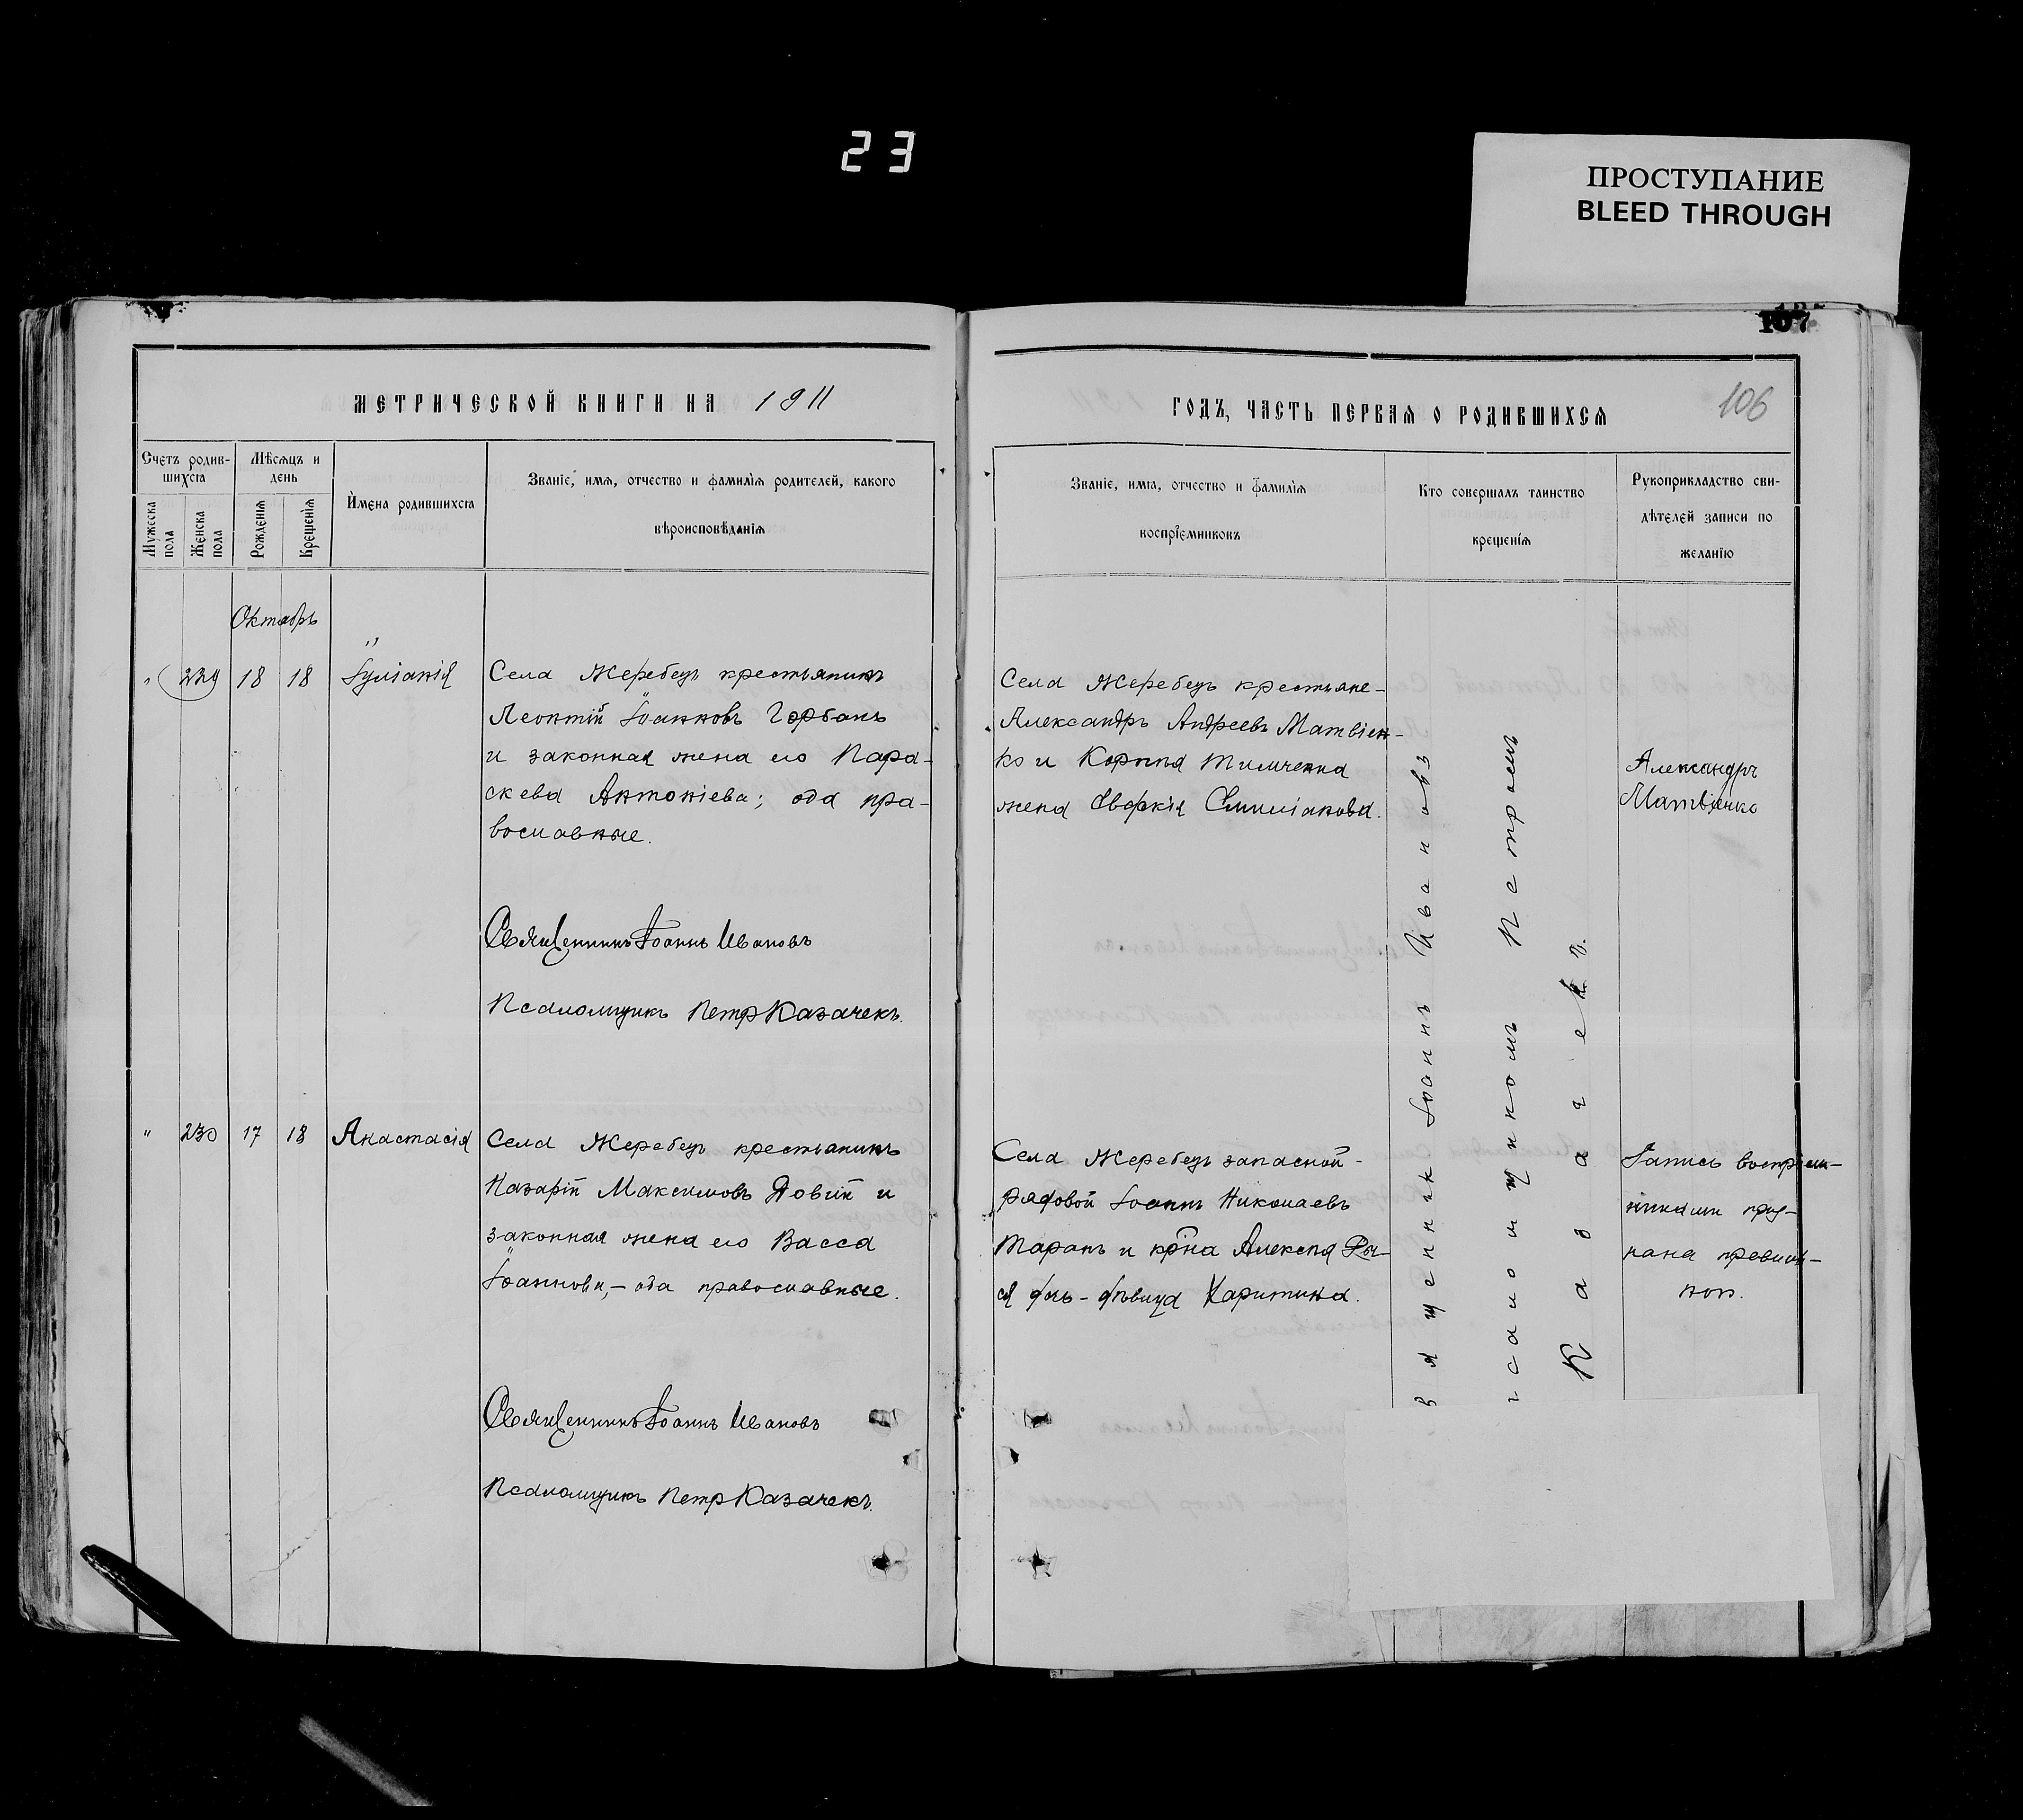 23
ПРОСТУПАНИЕ
BLEED THROUGH
107
106
МЕТРИЧЕСКОЙ КНИГИ НА 1911
Счетъ родив-
шихся
Мѣсяцъ и
день
Мужеска
пола
Женска
пола
Рожденія
Крещенія
Имена родившихся
Званіе, имя, отчество и фамилія родителей, какого
вѣроисповѣданія
Октябрь
" 229 18 18 Іуліанія
Села Жеребецъ крестьянинъ
Леонтій Іоанновъ Горбань
и законная жена его Пара-
скева Антоніева; оба пра-
вославные.
Священникъ Іоаннъ Ивановъ
Псаломщикъ Петръ Казачекъ.
" 230 17 18 Анастасія
Села Жеребецъ крестьянинъ
Назарій Максимовъ Довій и
законная жена его Васса
Іоаннова,- оба православные.
Священникъ Іоаннъ Ивановъ
Псаломщикъ Петръ Казачекъ.
ГОДЪ, ЧАСТЬ ПЕРВАЯ О РОДИВШИХСЯ
Званіе, имя, отчество и фамилія
воспріемниковъ
Кто совершалъ таинство
крещенія
Рукоприкладство сви-
дѣтелей записи по
желанію
Села Жеребецъ крестьяне-
Александръ Андреевъ Матвіен-
ко и Тимченка
жена Емиліанова.
Александръ
Матвіенко
Села Жеребецъ запасной-
рядовой Іоаннъ Николаевъ
Таранъ и Алексія
дѣвица Харитина.
Запись воспріем-
никами приз-
нана
вященник Іоаннъ Ивановъ
саломщикомъ Петромъ
Казачекъ.